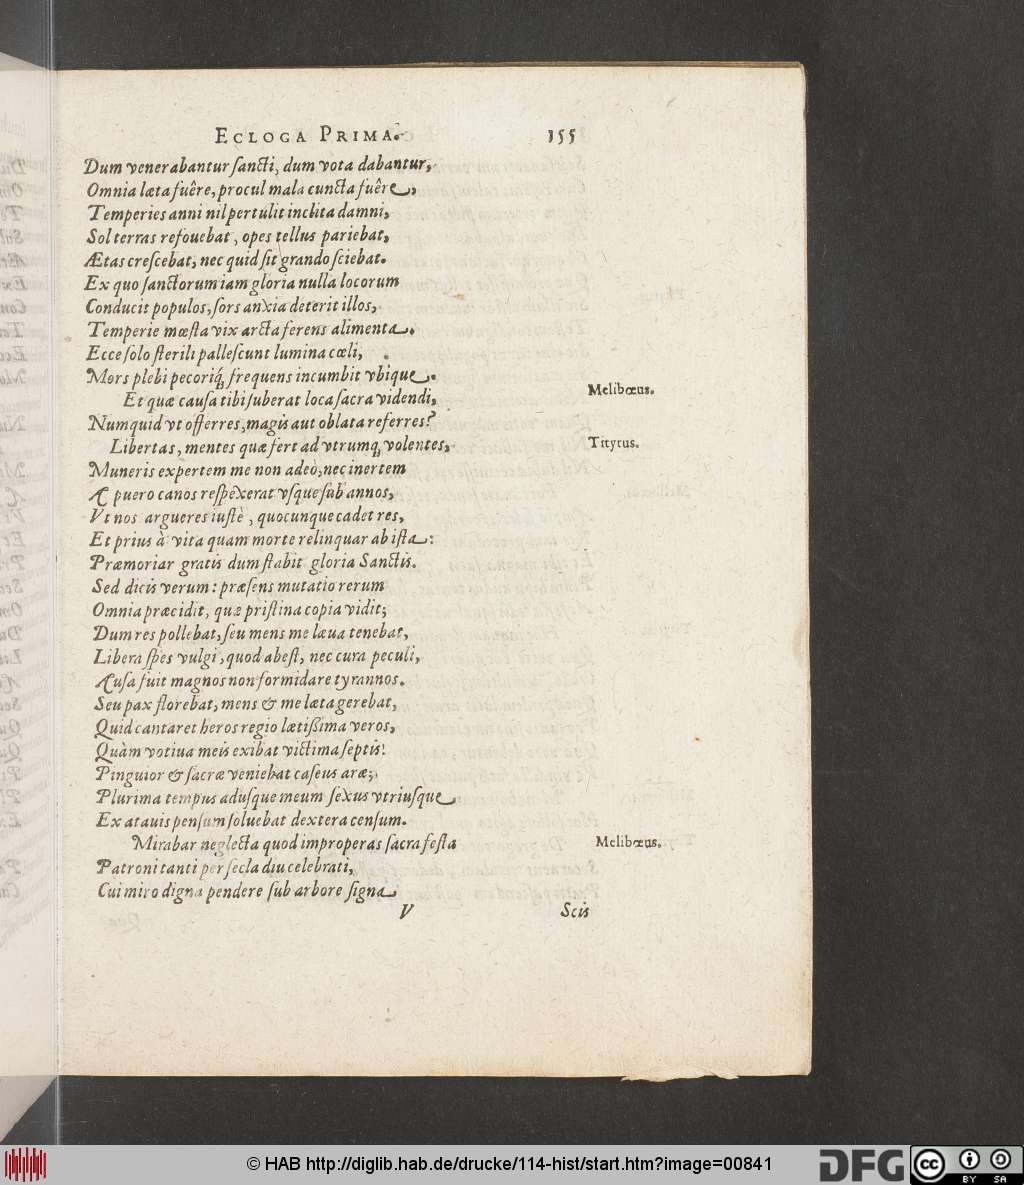 ECLOGA PRIMA. 155
Dum venerabantur sancti, dum vota dabantur,
Omnia læta fuêre, procul mala cuncta fuêre,
Temperies anni nil pertulit inclita damni,
Sol terras refouebat, opes tellus pariebat,
Ætas crescebat, nec quid sit grando sciebat.
Ex quo sanctorum iam gloria nulla locorum
Conducit populos, sors anxia deterit illos,
Temperie mœsta vix arcta ferens alimenta.
Ecce solo sterili pallescunt lumina cœli,
Mors plebi pecoriq́; frequens incumbit vbique.
Et quæ causa tibi suberat loca sacra videndi, Melibœus.
Numquid vt offerres, magis aut oblata referres?
Libertas, mentes quæ fert ad vtrumq; volentes, Tityrus.
Muneris expertem me non adeò, nec inertem
A puero canos respexerat vsque sub annos,
Vt nos argueres iustè, quocunque cadet res,
Et prius à vita quam morte relinquar ab ista:
Præmoriar gratis dum stabit gloria Sanctis.
Sed dicis verum: præsens mutatio rerum
Omnia præcidit, quæ pristina copia vidit;
Dum res pollebat, seu mens me læua tenebat,
Libera spes vulgi, quod abest, nec cura peculi,
Ausa fuit magnos non formidare tyrannos.
Seu pax florebat, mens & me læta gerebat,
Quid cantaret heros regio lætißima veros,
Quàm votiua meis exibat victima septis!
Pinguior & sacræ veniebat caseus aræ;
Plurima tempus adusque meum sexus vtriusque
Ex atauis pensum soluebat dextera censum.
Mirabar neglecta quod improperas sacra festa Melibœus.
Patroni tanti per secla diu celebrati,
Cui miro digna pendere sub arbore signa
V Scis
© HAB http://diglib.hab.de/drucke/114-hist/start.htm?image=00841
DFG cc BY SA